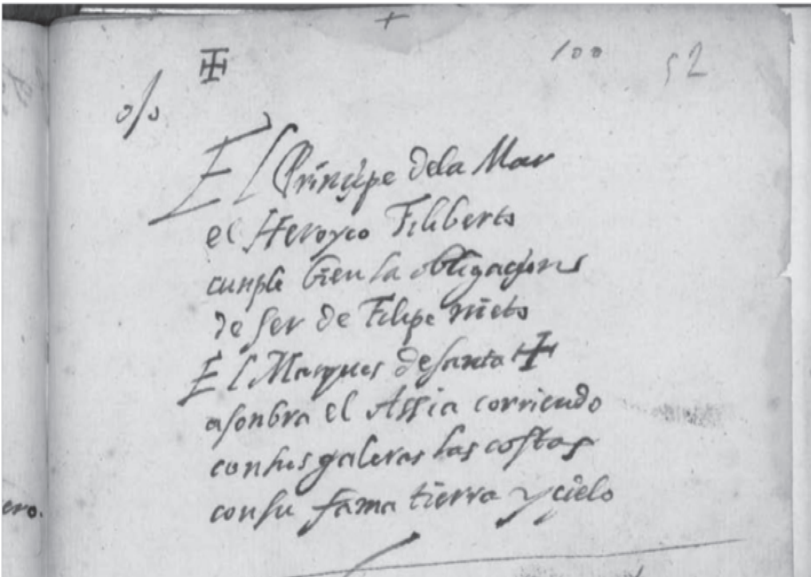 100 52
El Prinçipe dela Mar
el Heroyco Filiberto
cunple bien la obligaçion
de ser de Felipe nieto
El Marques de santa ✠
asonbra el Assia corriendo
consus galeras las costas
consu fama tierra y cielo
ero.